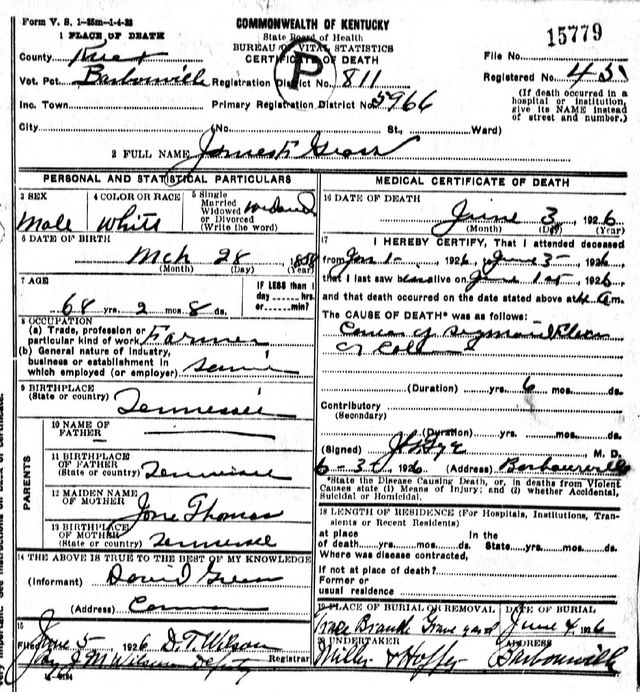 Form V. S. 1-85m-1-4-23
COMMONWEALTH OF KENTUCKY
State Board of Health
BUREAU OF VITAL STATISTICS
CERTIFICATE OF DEATH
15779
1 PLACE OF DEATH
County Knox
File No.
Vot. Pct. Barbourville Registration District No. 811
Registered No.
P
Inc. Town Primary Registration District No. 5966
(If death occurred in a
hospital or institution,
give its NAME instead
of street and number.)
City (No. St., Ward)
2 FULL NAME James F
PERSONAL AND STATISTICAL PARTICULARS
3 SEX
Male
4 COLOR OR RACE
White
5 Single
Married
Widowed
or Divorced
(Write the word)
Widowed
6 DATE OF BIRTH
Mch 28 1858
(Month) (Day) (Year)
7 AGE
68 yrs. 2 mos. 8 ds.
IF LESS than 1
day hrs.
or min?
8 OCCUPATION
(a) Trade, profession or
particular kind of work Farmer
(b) General nature of industry,
business or establishment in
which employed (or employer)
9 BIRTHPLACE
(State or country)
Tennessee
PARENTS
10 NAME OF
FATHER
11 BIRTHPLACE
OF FATHER
(State or country) Tennessee
12 MAIDEN NAME
OF MOTHER
Jane Thomas
13 BIRTHPLACE
OF MOTHER
(State or country) Tennessee
14 THE ABOVE IS TRUE TO THE BEST OF MY KNOWLEDGE
(Informant) David Green
(Address)
15
Filed June 5 1926 D. T. Wilson
J M Wilson Deputy Registrar
MEDICAL CERTIFICATE OF DEATH
16 DATE OF DEATH
June 3, 1926
(Month) (Day) (Year)
17 I HEREBY CERTIFY, That I attended deceased
from Jan 1- 1926, to June 3- 1926
that I last saw alive on June 1st 1926
and that death occurred on the date stated above at 4 a m.
The CAUSE OF DEATH* was as follows:
Cancer of Sigmoid Flexure
of Colon
(Duration) yrs. 6 mos. ds.
Contributory
(Secondary)
(Duration) yrs. mos. ds.
(Signed) M. D.
6-3 1926 (Address) Barbourville
*State the Disease Causing Death, or, in deaths from Violent
Causes state (1) Means of Injury; and (2) whether Accidental,
Suicidal or Homicidal.
18 LENGTH OF RESIDENCE (For Hospitals, Institutions, Tran-
sients or Recent Residents)
at place In the
of death yrs. mos. ds. State yrs. mos. ds.
Where was disease contracted,
If not at place of death?
Former or
usual residence
19 PLACE OF BURIAL OR REMOVAL
Branch Grave yard
DATE OF BURIAL
June 4, 1926
20 UNDERTAKER
Miller & Hoffer
ADDRESS
Barbourville